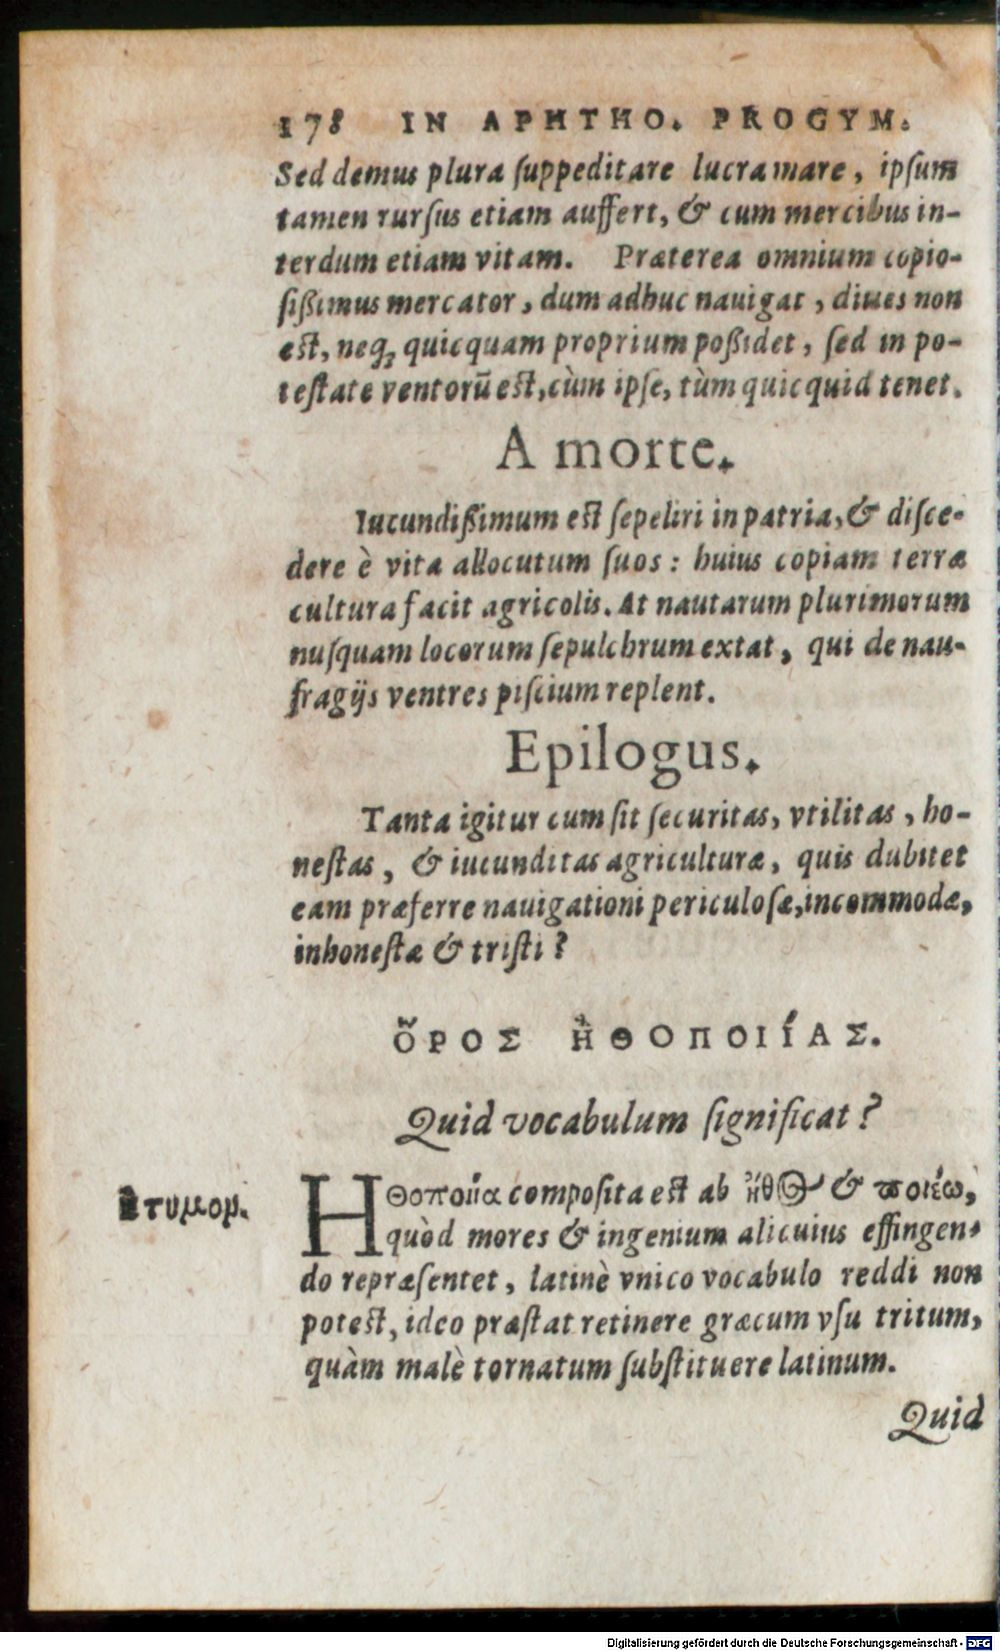 178 IN APHTHO. PROGYM.
Sed demus plura ſuppeditare lucra mare, ipſum
tamen rurſus etiam auffert, & cum mercibus in-
terdum etiam vitam. Præterea omnium copio-
ſißimus mercator, dum adhuc nauigat, diues non
est, neq; quicquam proprium poßidet, ſed in po-
teſtate ventorū est, cùm ipſe, tùm quicquid tenet.
A morte.
Iucundißimum est ſepeliri in patria, & diſce-
dere è vita allocutum ſuos: huius copiam terræ
cultura facit agricolis. At nautarum plurimorum
nuſquam locorum ſepulchrum extat, qui de nau-
fragijs ventres piſcium replent.
Epilogus.
Tanta igitur cum ſit ſecuritas, vtilitas, ho-
neſtas, & iucunditas agriculturæ, quis dubitet
eam præferre nauigationi periculoſæ, incommodæ,
inhoneſtæ & triſti?
ὍΡΟΣ ἨΘΟΠΟΙΙΊΑΣ.
Quid vocabulum ſignificat?
Ετυμον.
Ηθοποιΐα compoſita est ab ἦθος & ποιέω,
quòd mores & ingenium alicuius effingen-
do repræſentet, latinè vnico vocabulo reddi non
potest, ideo præſtat retinere græcum vſu tritum,
quàm malè tornatum ſubſtituere latinum.
Quid
Digitalisierung gefördert durch die Deutsche Forschungsgemeinschaft - DFG